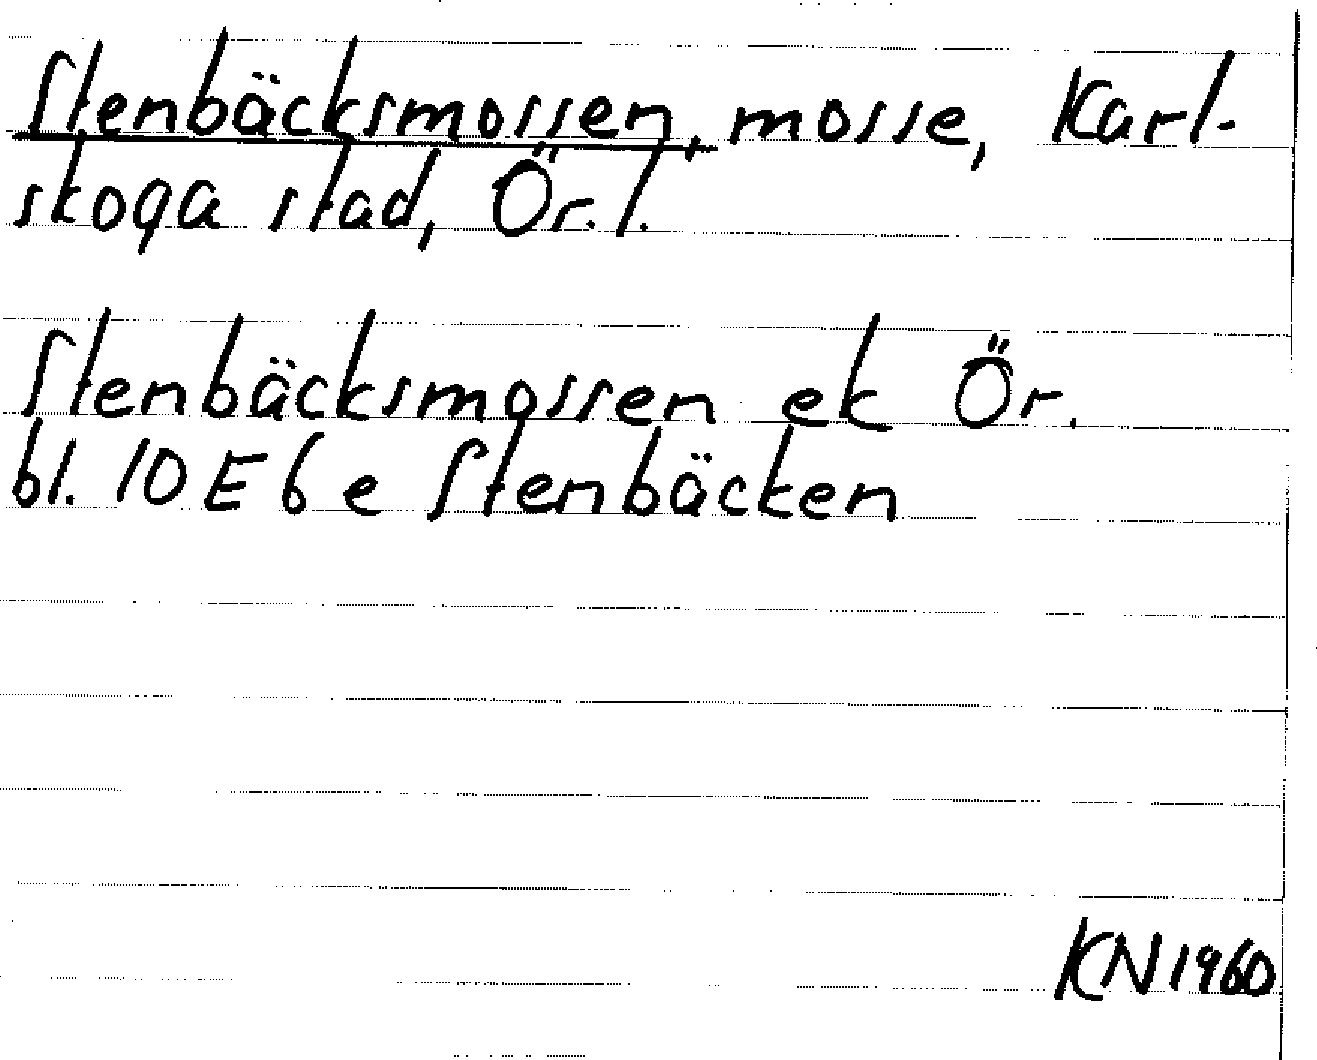 Stenbäcksmossen, mosse, Karl-
skoga stad, Ör. l.
Stenbäcksmossen ek Ör.
bl. 10 E 6 e Stenbäcken
KN 1960